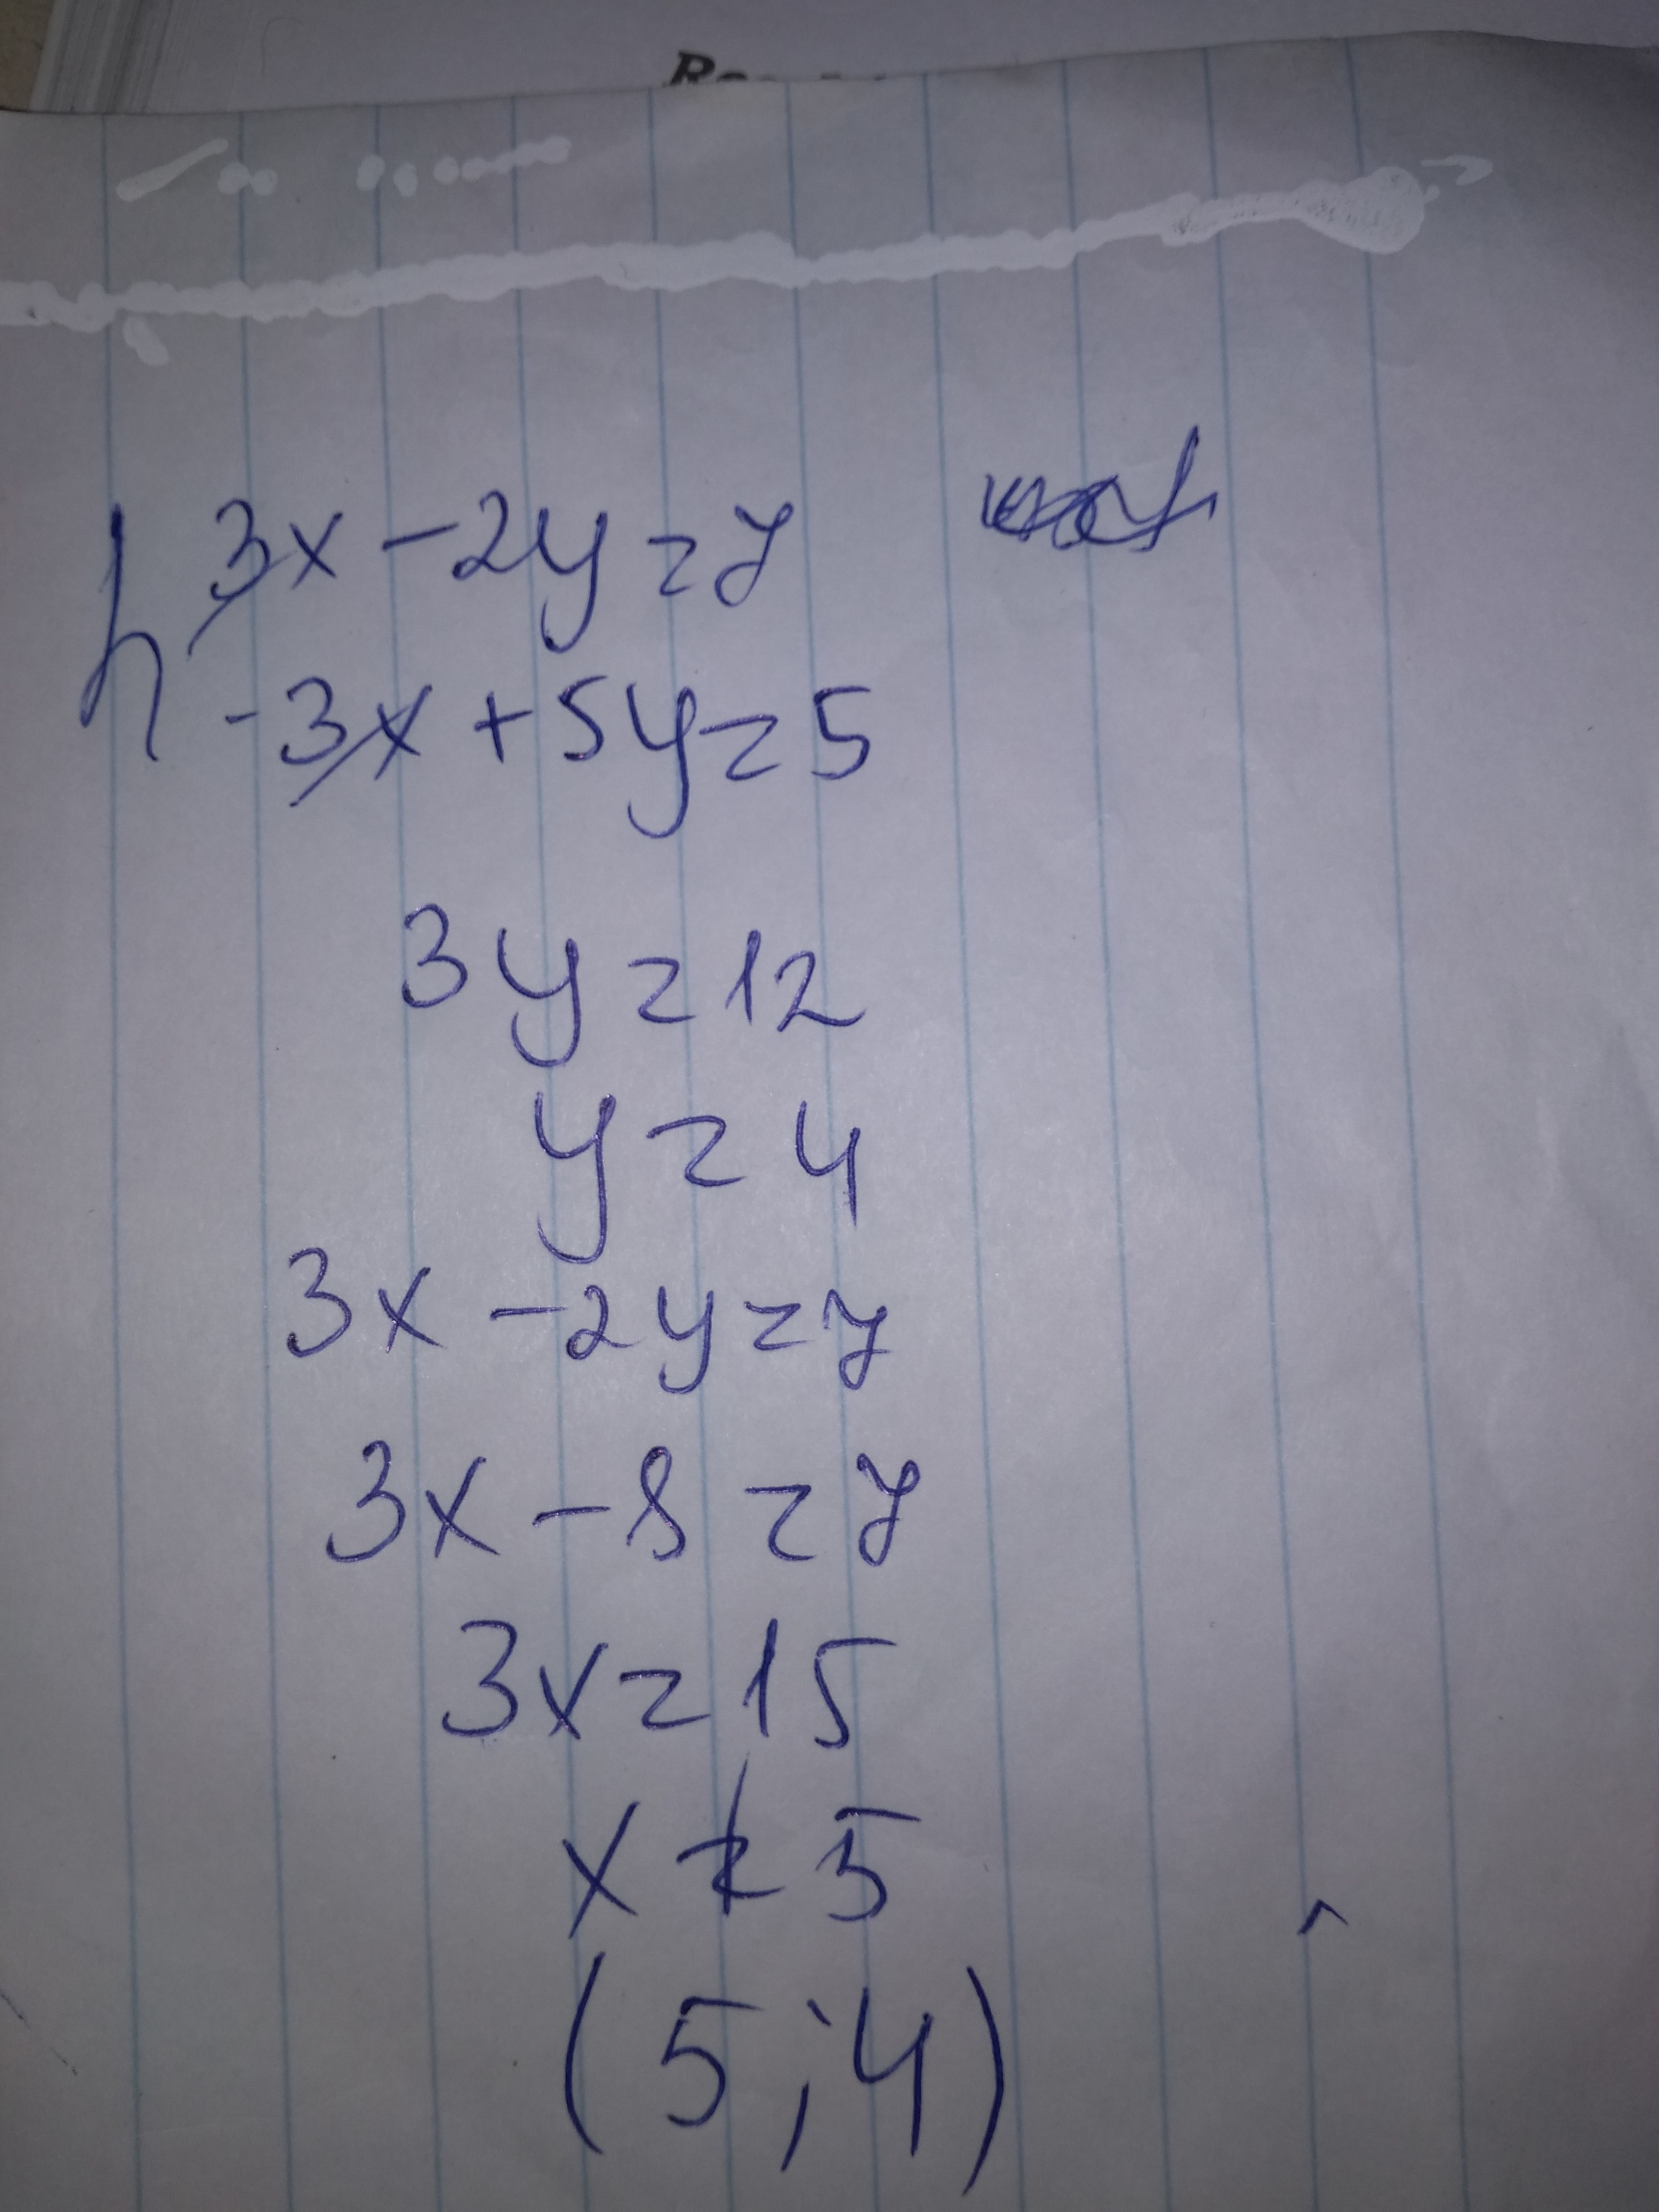 3x - 2y = 7
-3x + 5y = 5
3y = 12
y = 4
3x - 2y = 7
3x - 8 = 7
3x = 15
x = 5
(5 ; 4)